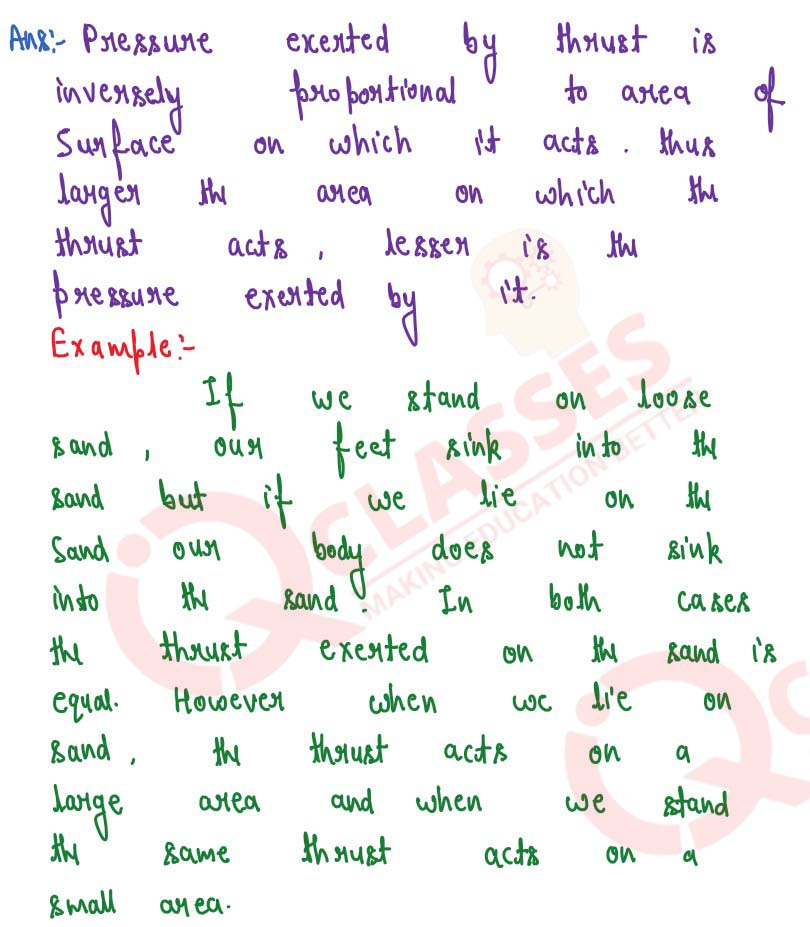 Ans:- Pressure exerted by thrust is
inversely proportional to area of
Surface on which it acts. thus
larger the area on which the
thrust acts, lesser is the
pressure exerted by it.
Example:-
If we stand on loose
sand, our feet sink into the
sand but if we lie on the
Sand our body does not sink
into the sand. In both cases
the thrust exerted on the sand is
equal. However when we lie on
sand, the thrust acts on a
large area and when we stand
the same thrust acts on a
small area.
IQ CLASSES
MAKING EDUCATION BETTER
IQ CL